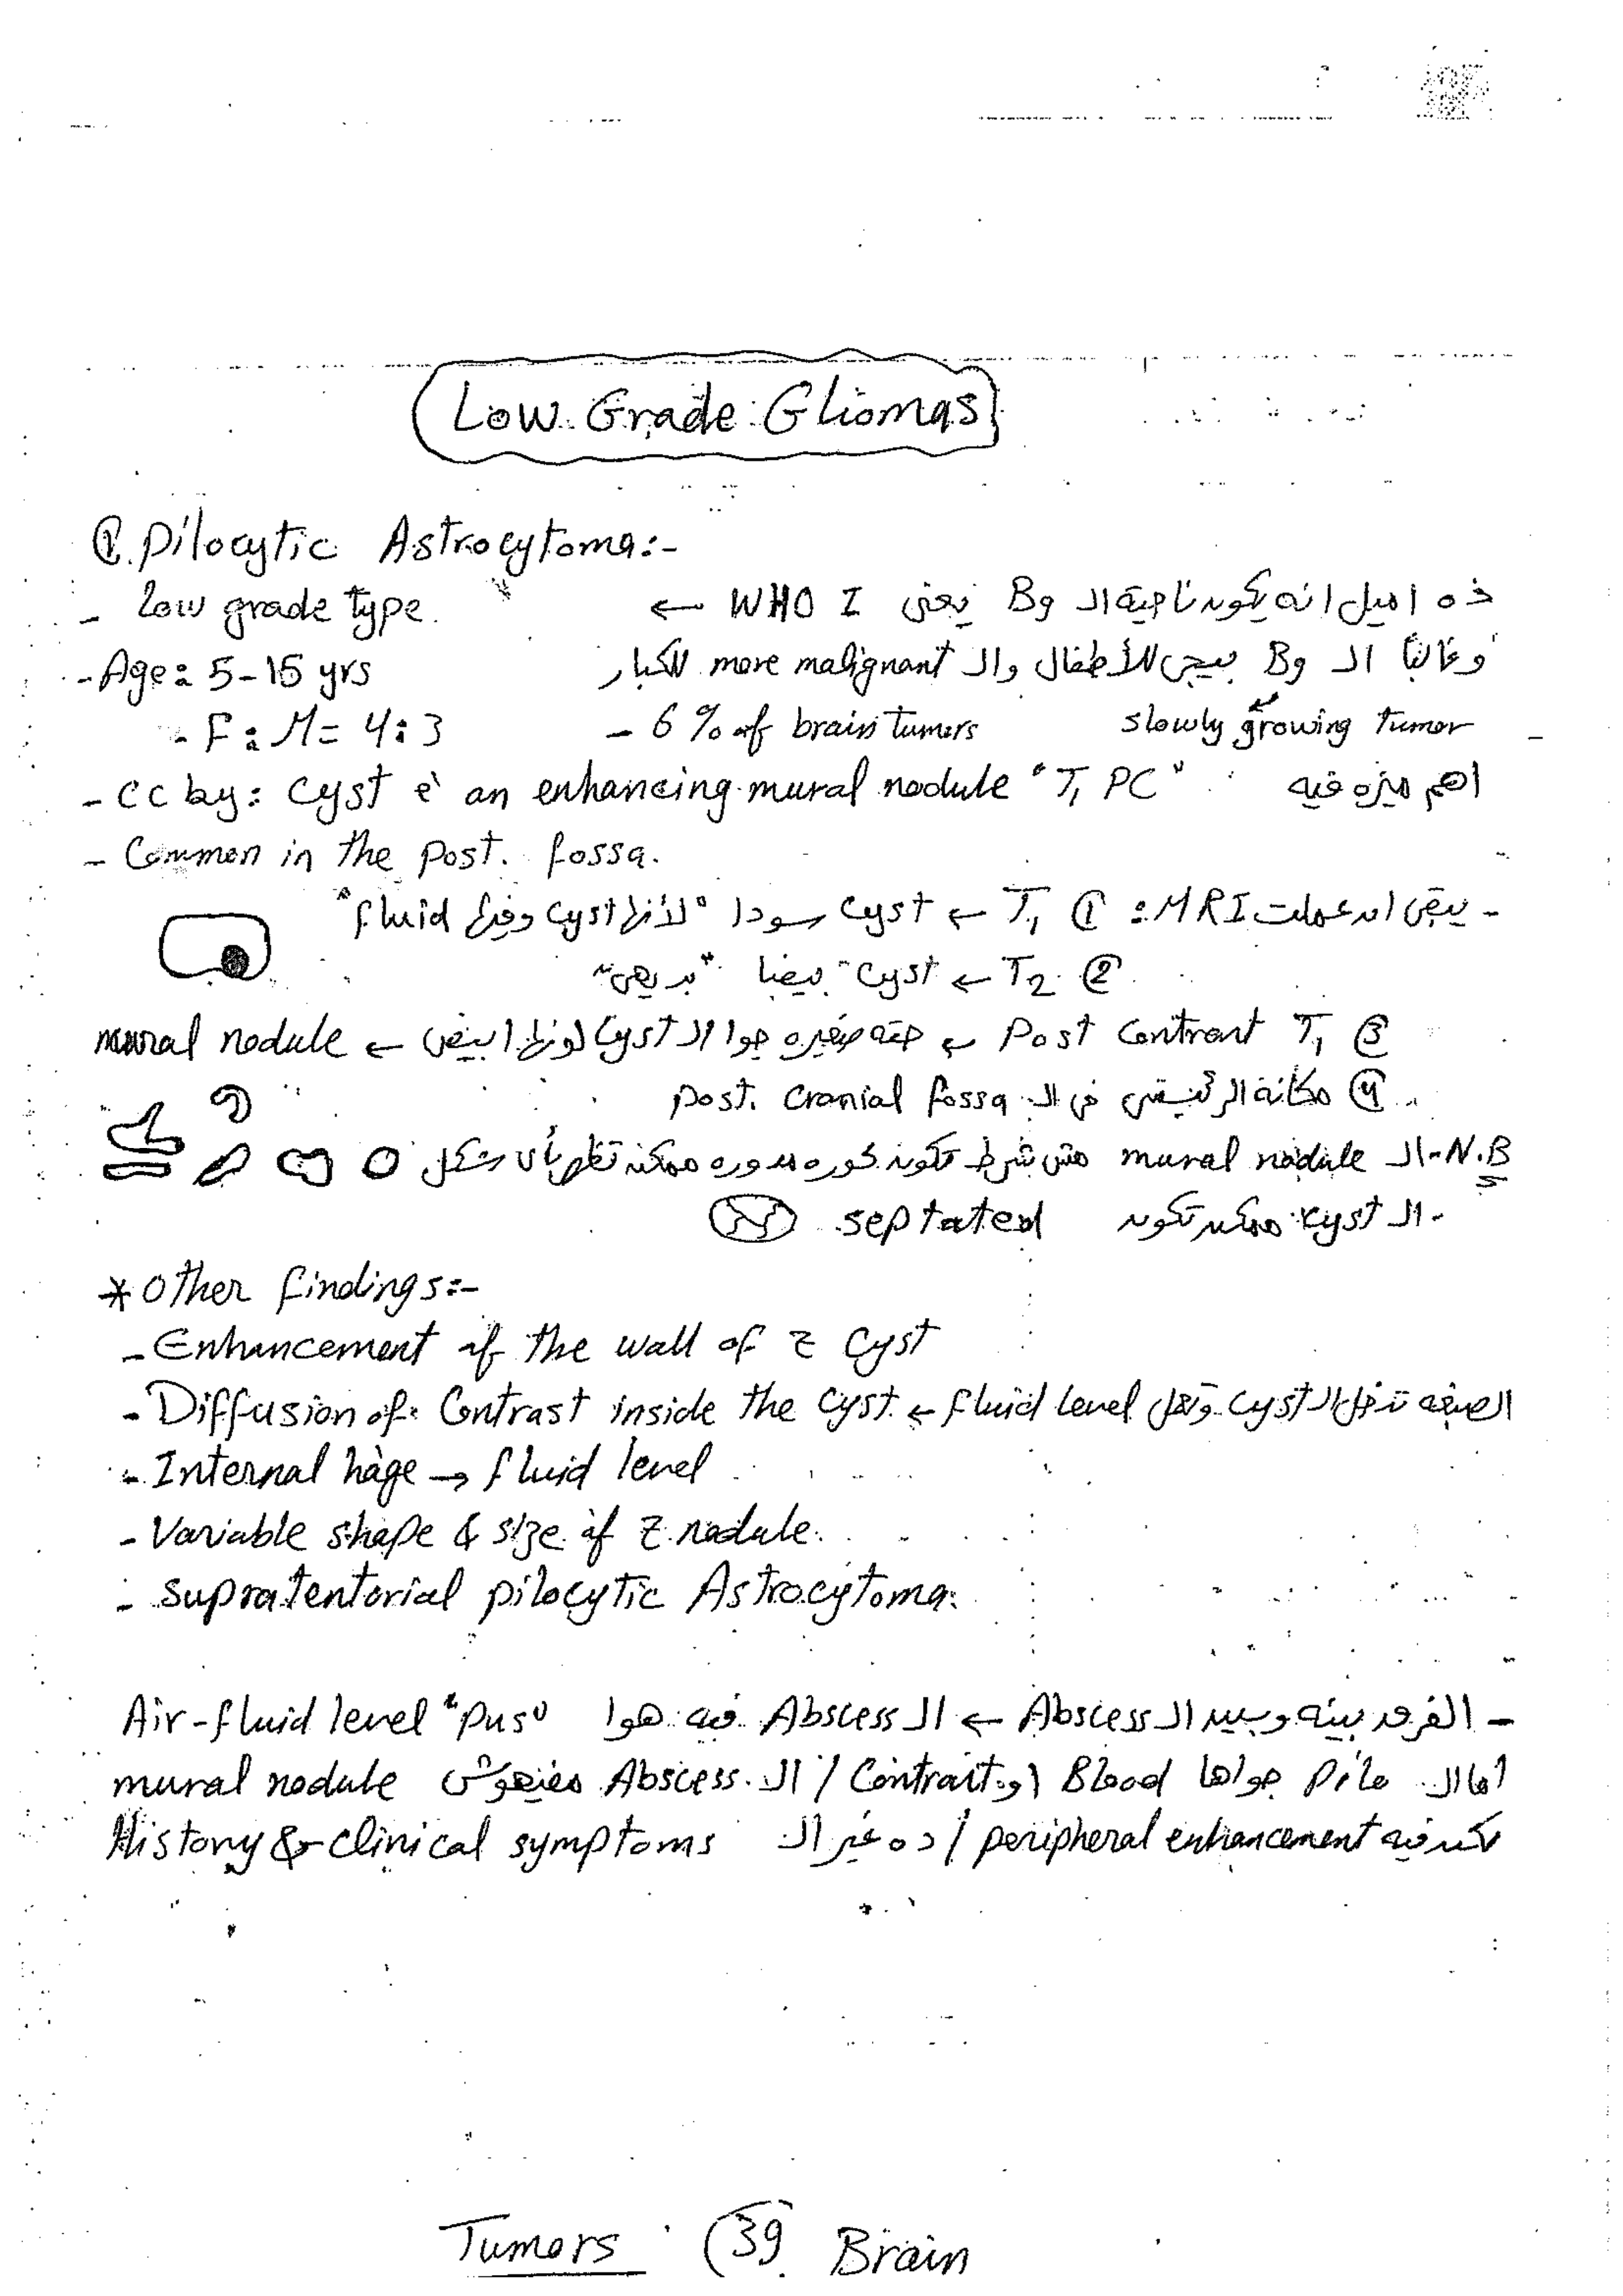 Low Grade Gliomas
① Pilocytic Astrocytoma:-
- low grade type. ← WHO I يعنى B9 ده اميل انه يكون ناحية ال
- Age: 5-15 yrs وغالبًا ال B9 بيجى للأطفال وال more malignant للكبار
- F : M = 4:3 - 6 % of brain tumers slowly growing tumor -
- CC by: Cyst c̄ an enhancing mural nodule "T1 PC" اهم ميزه فيه
- Common in the post. fossa.
- يبقى ان عملت MRI: ① T1 ← cyst سودا "لأنها cyst وفيها fluid"
② T2 ← cyst بيضا "بديهى"
③ Post Contrast T1 ← حته صغيره جوا ال cyst لونها ابيض ← mural nodule
④ مكانة الرئيسى فى ال post. cranial fossa
N.B - ال mural nodule مش شرط تكون كوره مدوره ممكن تظهر بأى شكل
- ال cyst ممكن تكون septated
* Other findings:-
- Enhancement of the wall of z cyst
- Diffusion of Contrast inside the cyst ← fluid level الصبغه تدخل ال cyst وتعمل
- Internal hage → fluid level
- Variable shape & size of z nodule.
- supratentorial pilocytic Astrocytoma.
- الفرق بينه وبين ال Abscess ← ال Abscess فيه هوا Air-fluid level "Pus"
اما ال Pilo جواها Blood او Contrast / ال Abscess مفيهوش mural nodule
لكن فيه peripheral enhancement / ده غير ال History & clinical symptoms
Tumors (39) Brain